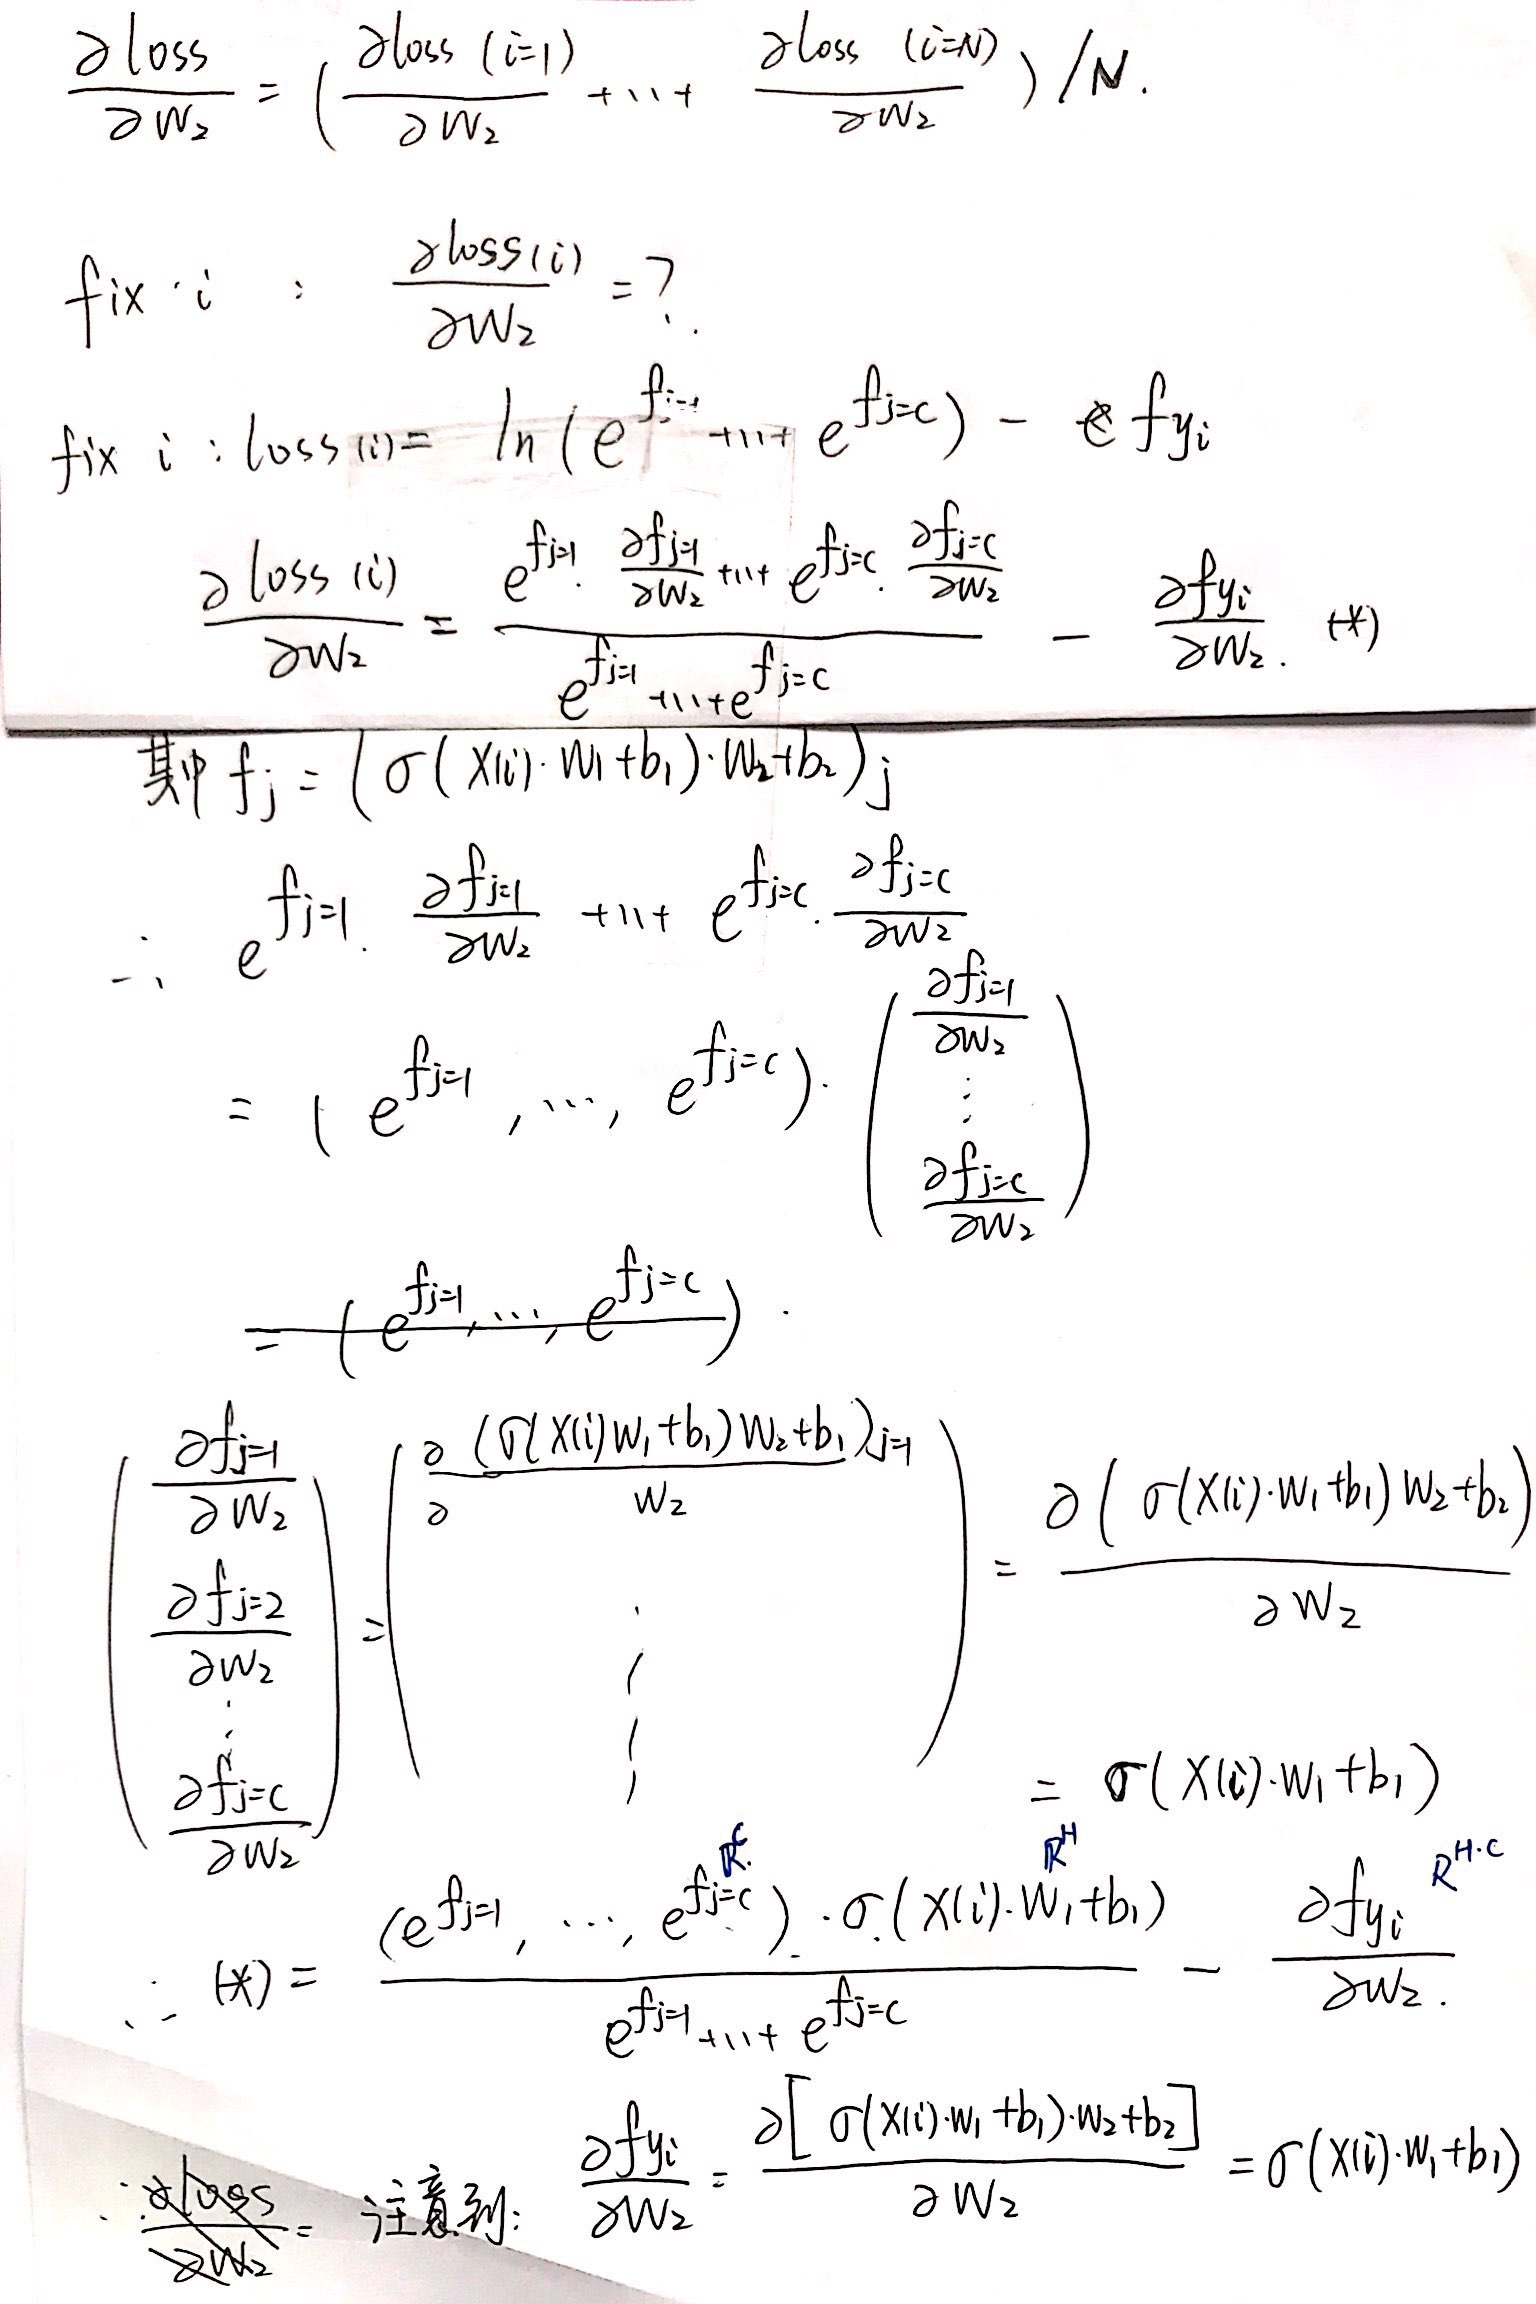 ∂loss/∂W₂ = (∂loss (i=1)/∂W₂ +...+ ∂loss (i=N)/∂W₂)/N.
fix i : ∂loss(i)/∂W₂ = ?
fix i : loss(i) = ln(e^{f_{j=1}} +...+ e^{f_{j=c}}) - f_{y_i}
∂loss(i)/∂W₂ = (e^{f_{j=1}}·∂f_{j=1}/∂W₂ +...+ e^{f_{j=c}}·∂f_{j=c}/∂W₂)/(e^{f_{j=1}} +...+ e^{f_{j=c}}) - ∂f_{y_i}/∂W₂. (*)
其中 f_j = (σ(X(i)·W₁+b₁)·W₂+b₂)_j
∴ e^{f_{j=1}}·∂f_{j=1}/∂W₂ +...+ e^{f_{j=c}}·∂f_{j=c}/∂W₂
= (e^{f_{j=1}}, ..., e^{f_{j=c}})·(∂f_{j=1}/∂W₂ ⋮ ∂f_{j=c}/∂W₂)
= (e^{f_{j=1}}, ..., e^{f_{j=c}}) ·
(∂f_{j=1}/∂W₂ ∂f_{j=2}/∂W₂ ⋮ ∂f_{j=c}/∂W₂) = (∂(σ(X(i)W₁+b₁)W₂+b₁)_{j=1}/∂W₂ ⋮) = ∂(σ(X(i)·W₁+b₁)W₂+b₂)/∂W₂
= σ(X(i)·W₁+b₁)
R^C R^H R^{H·C}
∴ (*) = (e^{f_{j=1}}, ..., e^{f_{j=c}})·σ(X(i)·W₁+b₁)/(e^{f_{j=1}} +...+ e^{f_{j=c}}) - ∂f_{y_i}/∂W₂.
∴ ∂loss/∂W₂ = 注意到: ∂f_{y_i}/∂W₂ = ∂[σ(X(i)·W₁+b₁)·W₂+b₂]/∂W₂ = σ(X(i)·W₁+b₁)